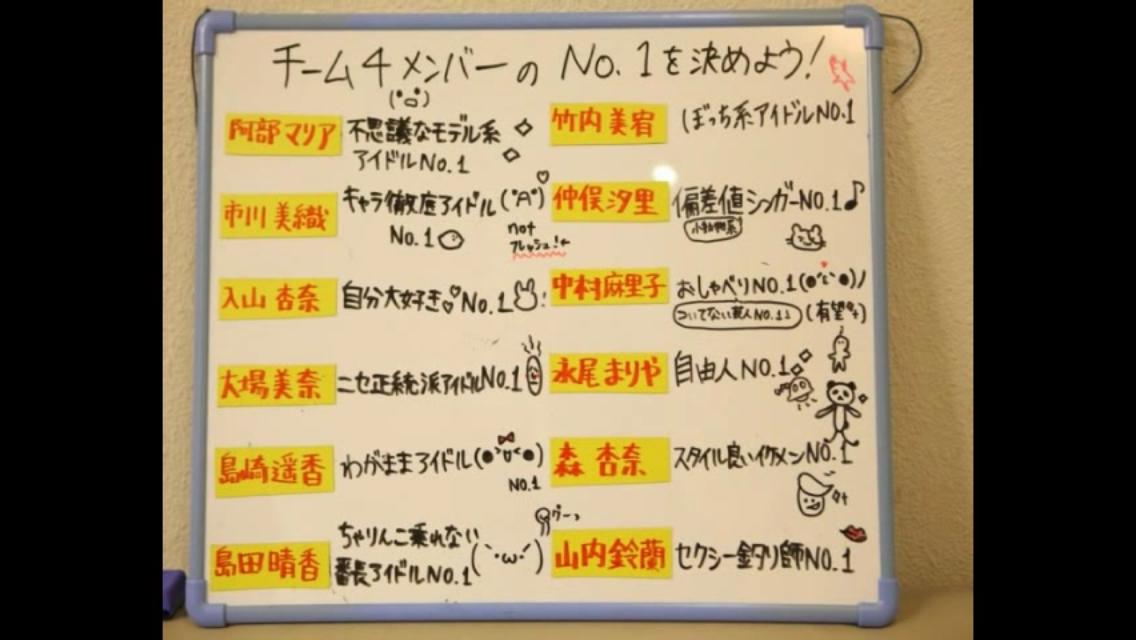 チーム4メンバーの No.1を決めよう!
阿部マリア
不思議なモデル系
アイドルNo.1
市川美織
キャラ徹底アイドル
No.1
not
フレッシュ!
入山杏奈
自分大好き♡No.1
大場美奈
ニセ正統派アイドルNO.1
島崎遥香
わがままアイドル
NO.1
島田晴香
ちゃりんこ乗れない
番長アイドルNO.1
グーっ
竹内美宥
ぼっち系アイドルNO.1
仲俣汐里
偏差値シンガーNO.1♪
小動物系
中村麻里子
おしゃべりNO.1
ついてない芸人NO.1
(有望
永尾まりや
自由人NO.1
森杏奈
スタイル良いイケメンNO.1
山内鈴蘭
セクシー釣り師NO.1